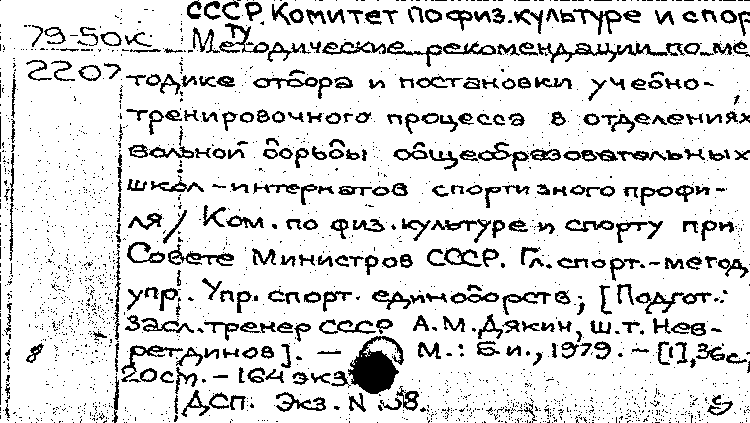 СССР. Комитет по физ.культуре и спор
79-50к Методические рекомендации по ме
ту
2207 тодике отбора и постановки учебно-
тренировочного процесса в отделениях
вольной борьбы общеобразовательных
школ-интернатов спортивного профи-
ля / Ком. по физ.культуре и спорту при
Совете Министров СССР. Гл.спорт.-метод
упр. Упр. спорт. единоборств; [Подгот.:
засл.тренер СССР А.М.Дякин, Ш.Т. Нев-
ретдинов]. — М.: Б.и., 1979. - [1], 36с;
20см. - 164 экз
ДСП. Экз. N 58.